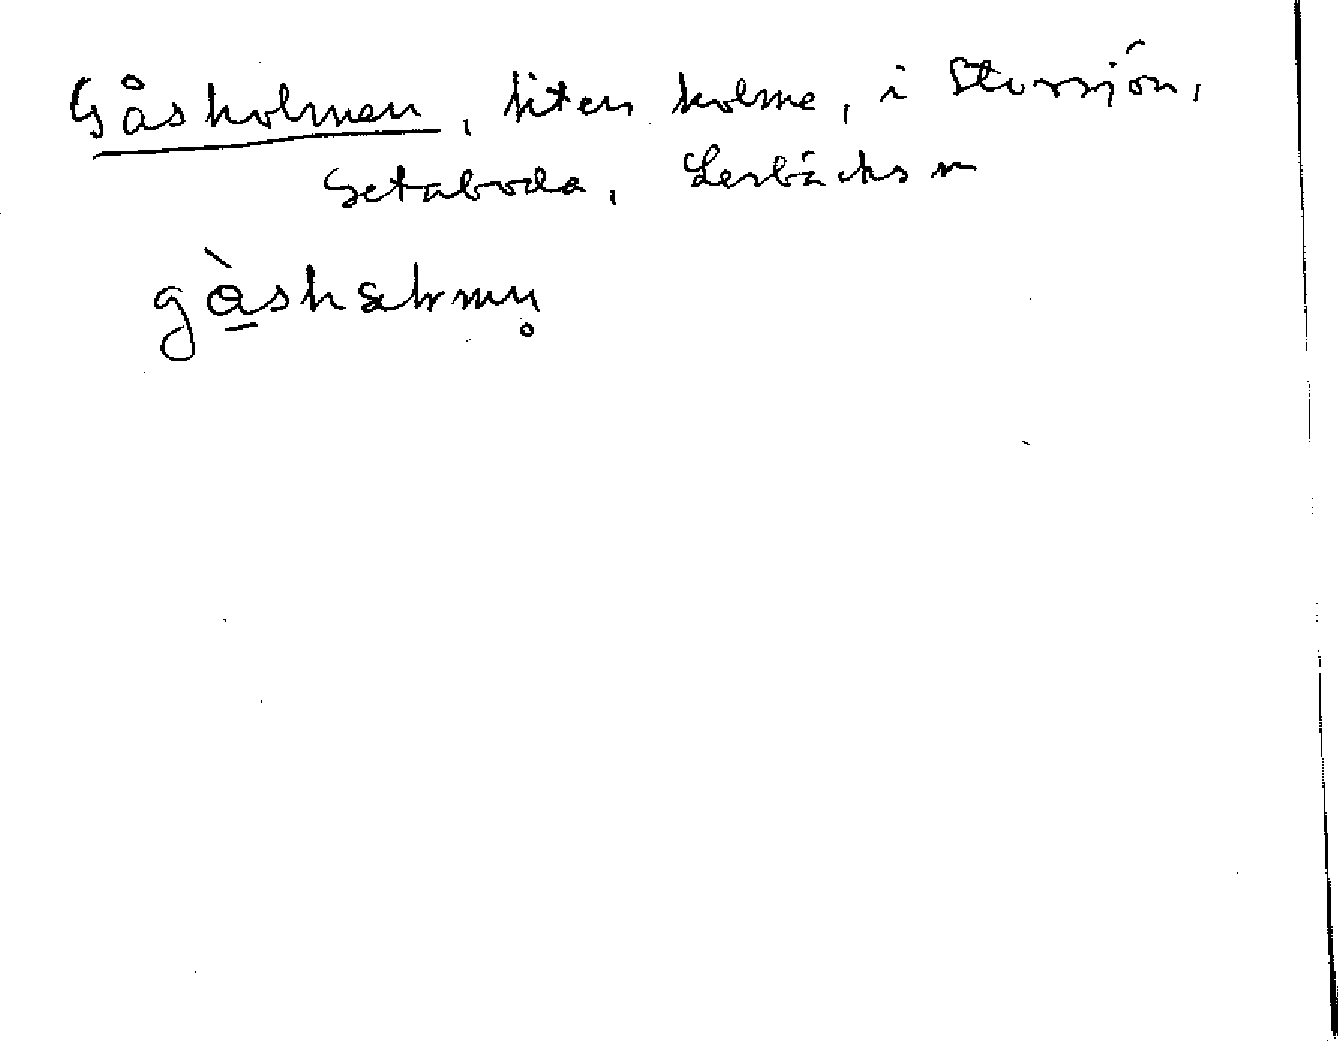 Gåsholmen, liten holme, i Storsjön,
Getaboda, Lerbäcks sn